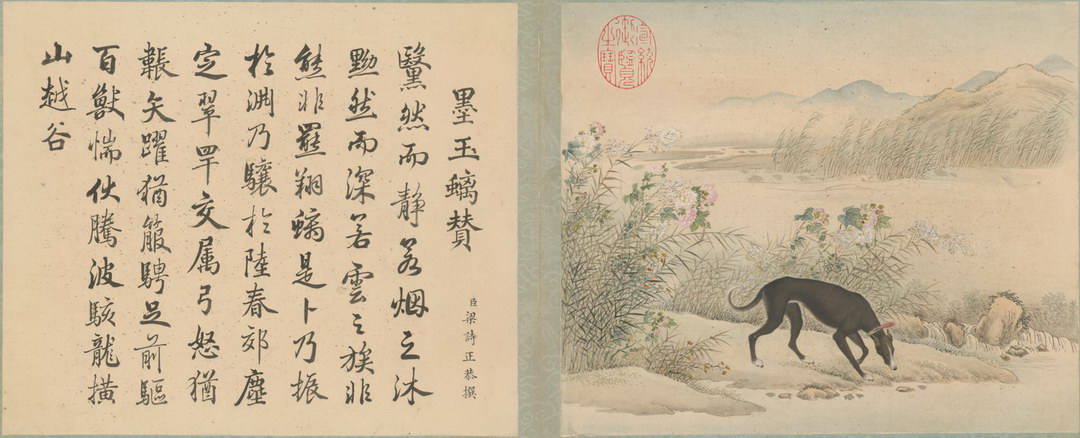 墨玉螭賛
臣梁詩正恭撰
黳然而静若烟之沐
黝然而深若雲之族非
熊非羆翔螭是卜乃振
於淵乃驤於陸春郊塵
定翠罕交属弓怒猶
韔矢躍猶箙騁足前驅
百獸惴伏騰波駭龍横
山越谷
乾隆御覽之寶